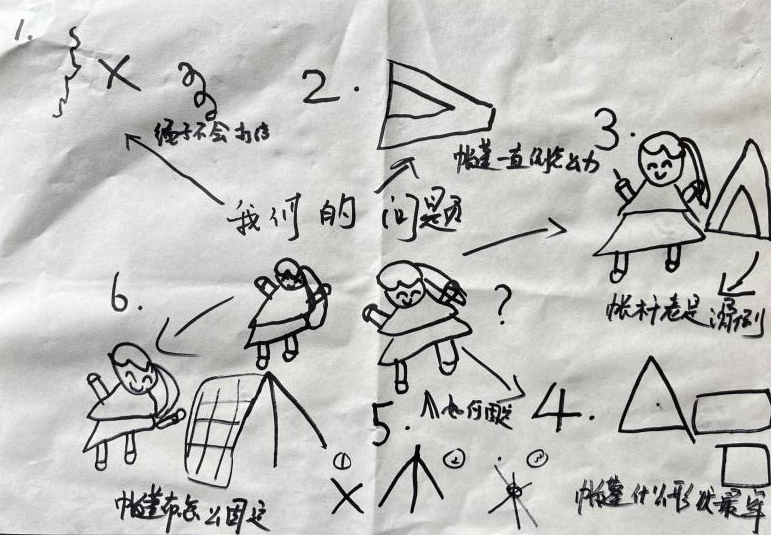 1.
绳子不会打结
2.
帐篷一直
我们的 问题
3.
帐杆老是滑倒
4.
帐篷什么形状最牢
5.
如何固定
① ② ③
6.
帐篷布怎么固定
?